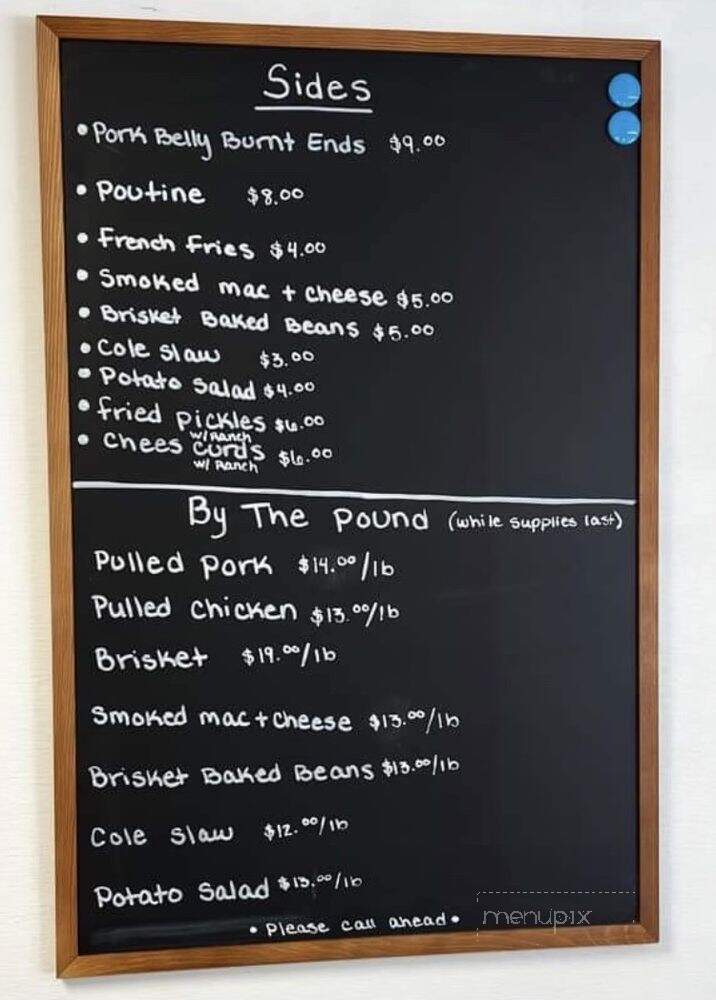 Sides
• Pork Belly Burnt Ends $9.00
• Poutine $8.00
• French Fries $4.00
• Smoked mac + cheese $5.00
• Brisket Baked Beans $5.00
• Cole Slaw $3.00
• Potato Salad $4.00
• Fried Pickles $6.00
w/ Ranch
• Chees Curds $6.00
w/ Ranch
By The Pound (while supplies last)
Pulled Pork $14.00/lb
Pulled Chicken $13.00/lb
Brisket $19.00/lb
Smoked mac + Cheese $13.00/lb
Brisket Baked Beans $13.00/lb
Cole Slaw $12.00/lb
Potato Salad $13.00/lb
• Please call ahead •
menupix